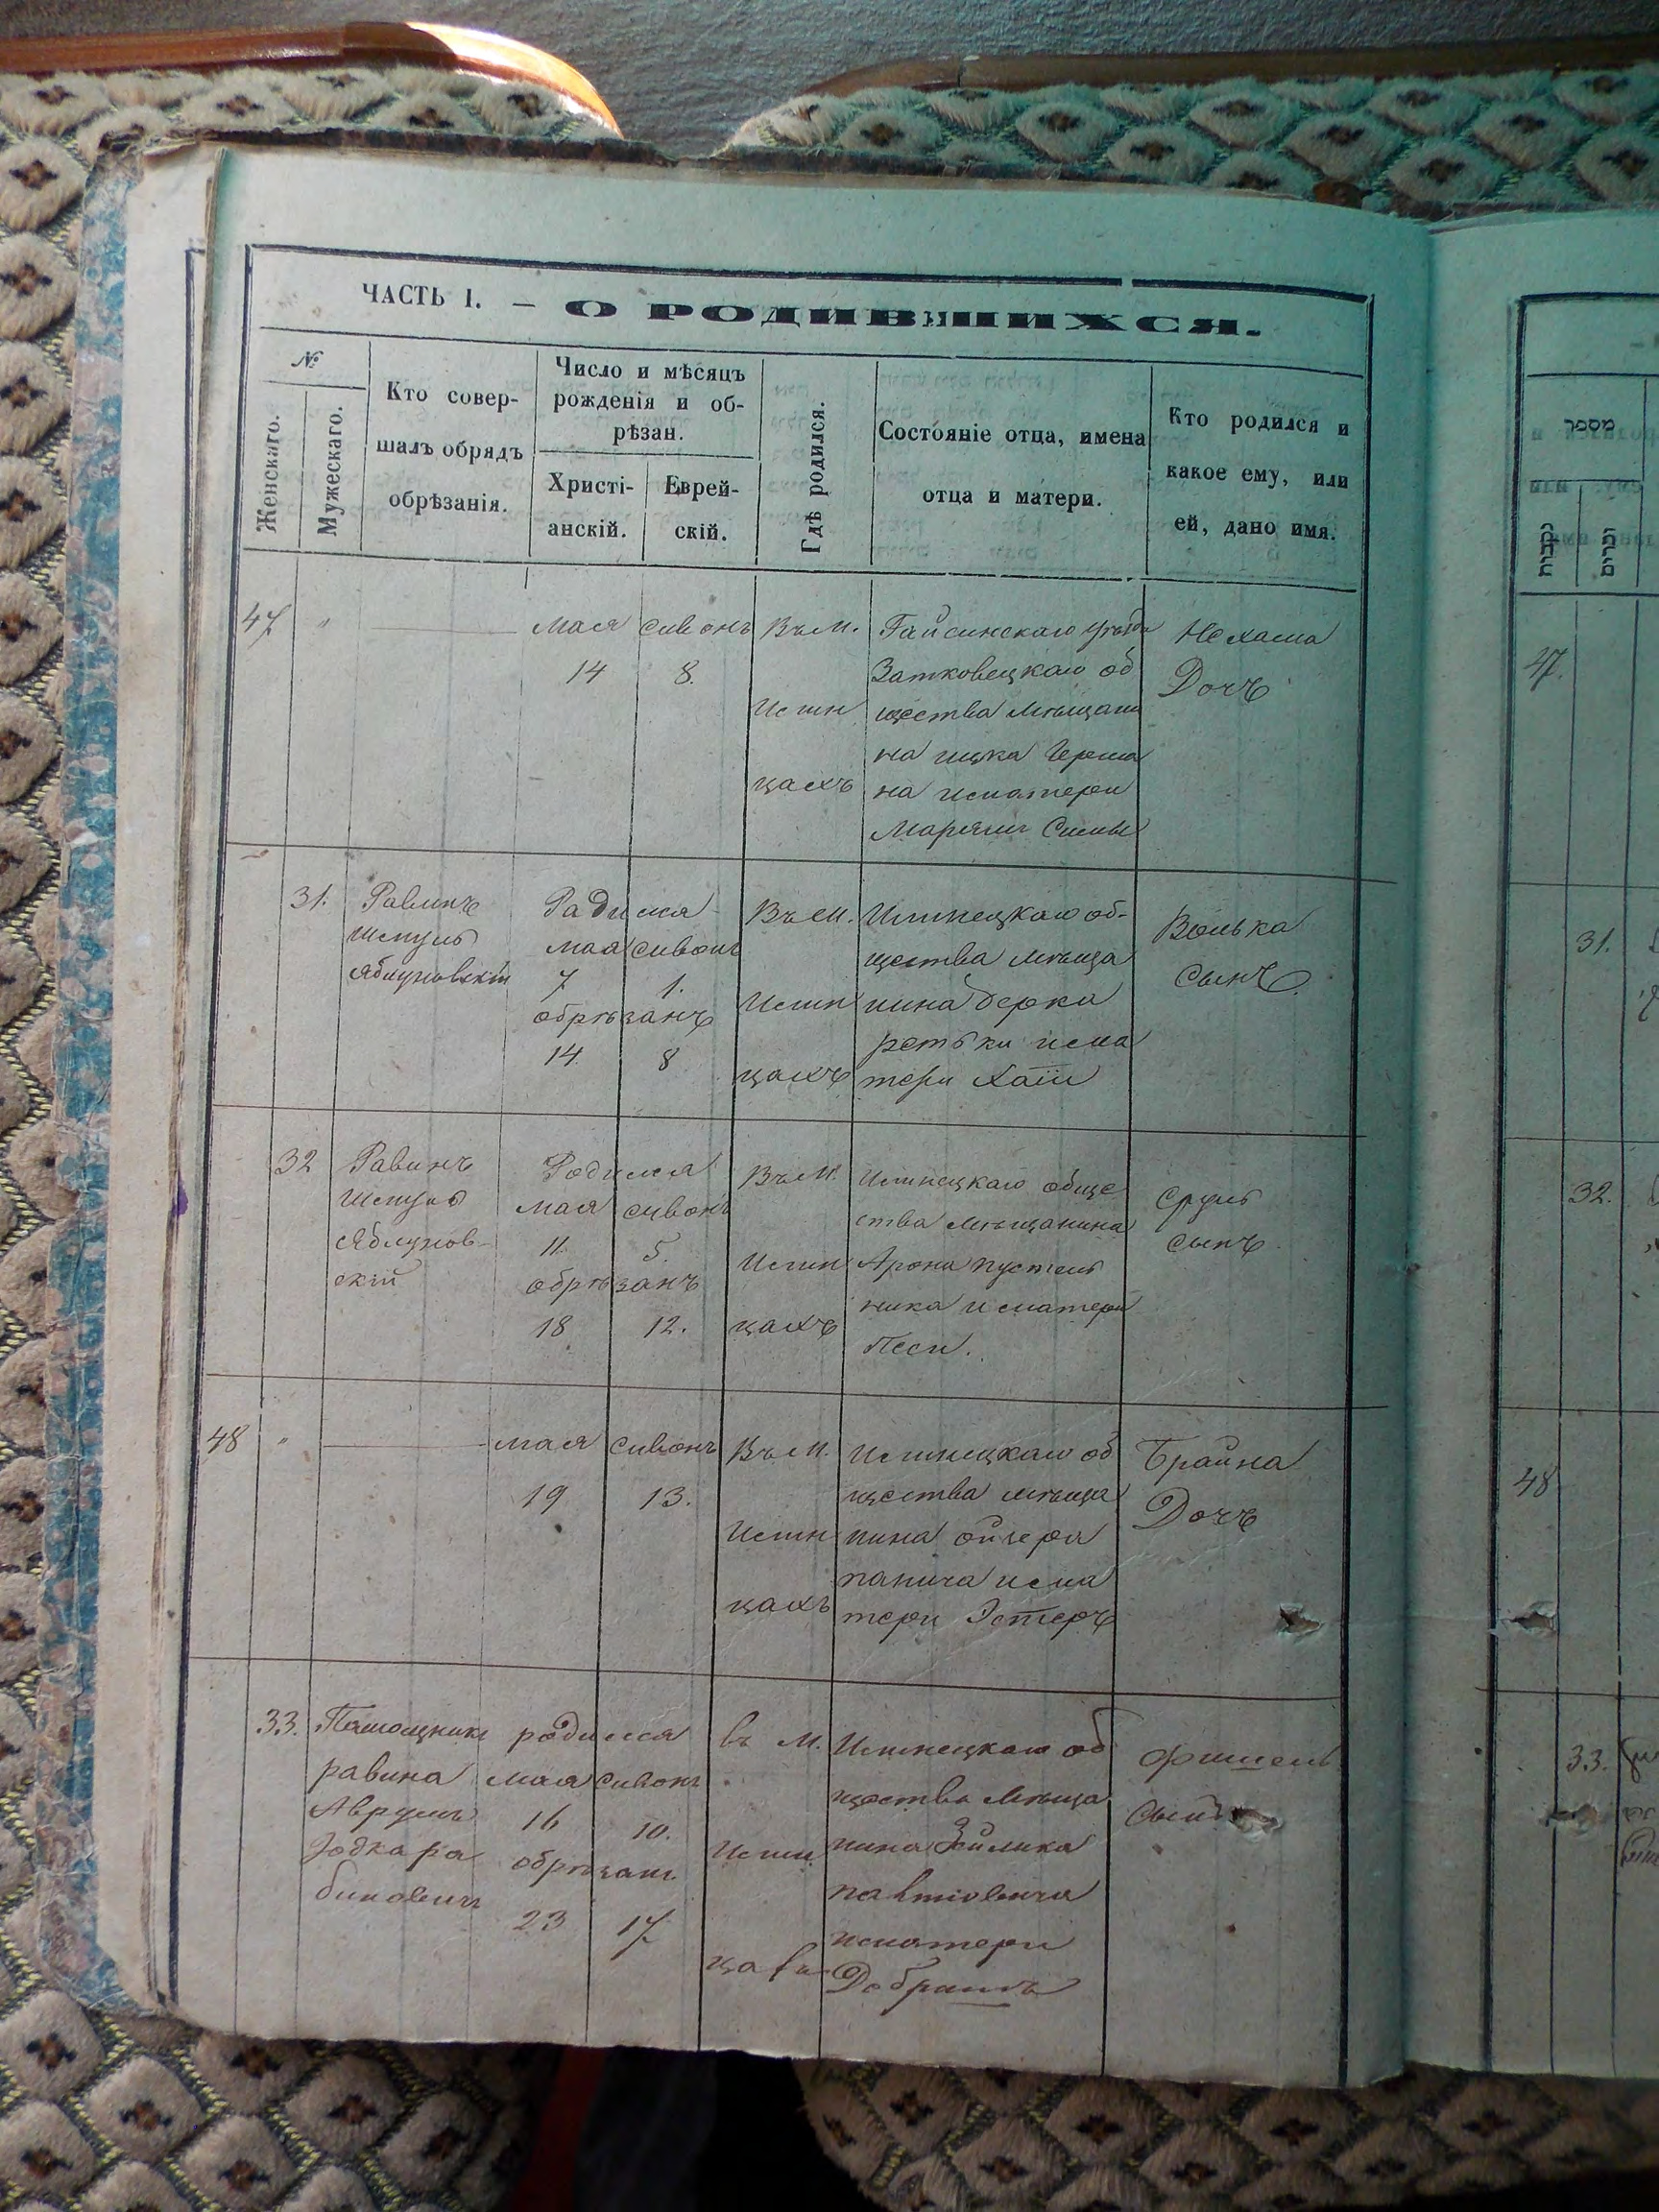 ЧАСТЬ I. — О РОДИВШИХСЯ.
№
Женскаго.
Мужескаго.
Кто совер-
шалъ обрядъ
обрѣзанія.
Число и мѣсяцъ
рожденія и об-
рѣзан.
Христі-
анскій.
Еврей-
скій.
Гдѣ родился.
Состояніе отца, имена
отца и матери.
Кто родился и
какое ему, или
ей, дано имя.
47 "
мая сивонъ
14 8.
Въ м.
Илин
цахъ
Гайсинскаго уѣзда
Затковецкаго об
щества мѣщани
на ицка Герша
на исматери
Марьяси
Нехама
Дочь
31.
Равинъ
Шмуль
Яблуновскій
Радился
мая сивонъ
7 1.
обрѣзанъ
14 8
Въ м.
Илин
цахъ
Илинецкаго об-
щества мѣща
нина Берка
исма
тери Хаіи
Волька
сынъ.
32
Равинъ
Шмуль
Яблунов-
скій
Родился
мая сивонъ
11. 5.
обрѣзанъ
18 12.
Въ м.
Илин
цахъ
Илинецкаго обще
ства мѣщанина
Арона пустель
ника и сматери
Песи.
Сруль
сынъ
48 "
мая сивонъ
19 13.
Въ м.
Илин
цахъ
Илинецкаго об
щества мѣща
нина ойзера
папича исма
тери Эстеръ
Брайна
Дочь
33.
Памощникъ
равина
Аврумъ
бинович
родился
мая сивонъ
16 10.
обрѣзанъ
23 17
въ м.
Илин
цахъ
Илинецкаго об
щества мѣща
нина Зейлика
исматери
Добришъ
Фишель
Сынъ
מספר
נקבות
זכרים
47.
31.
32.
48
33.